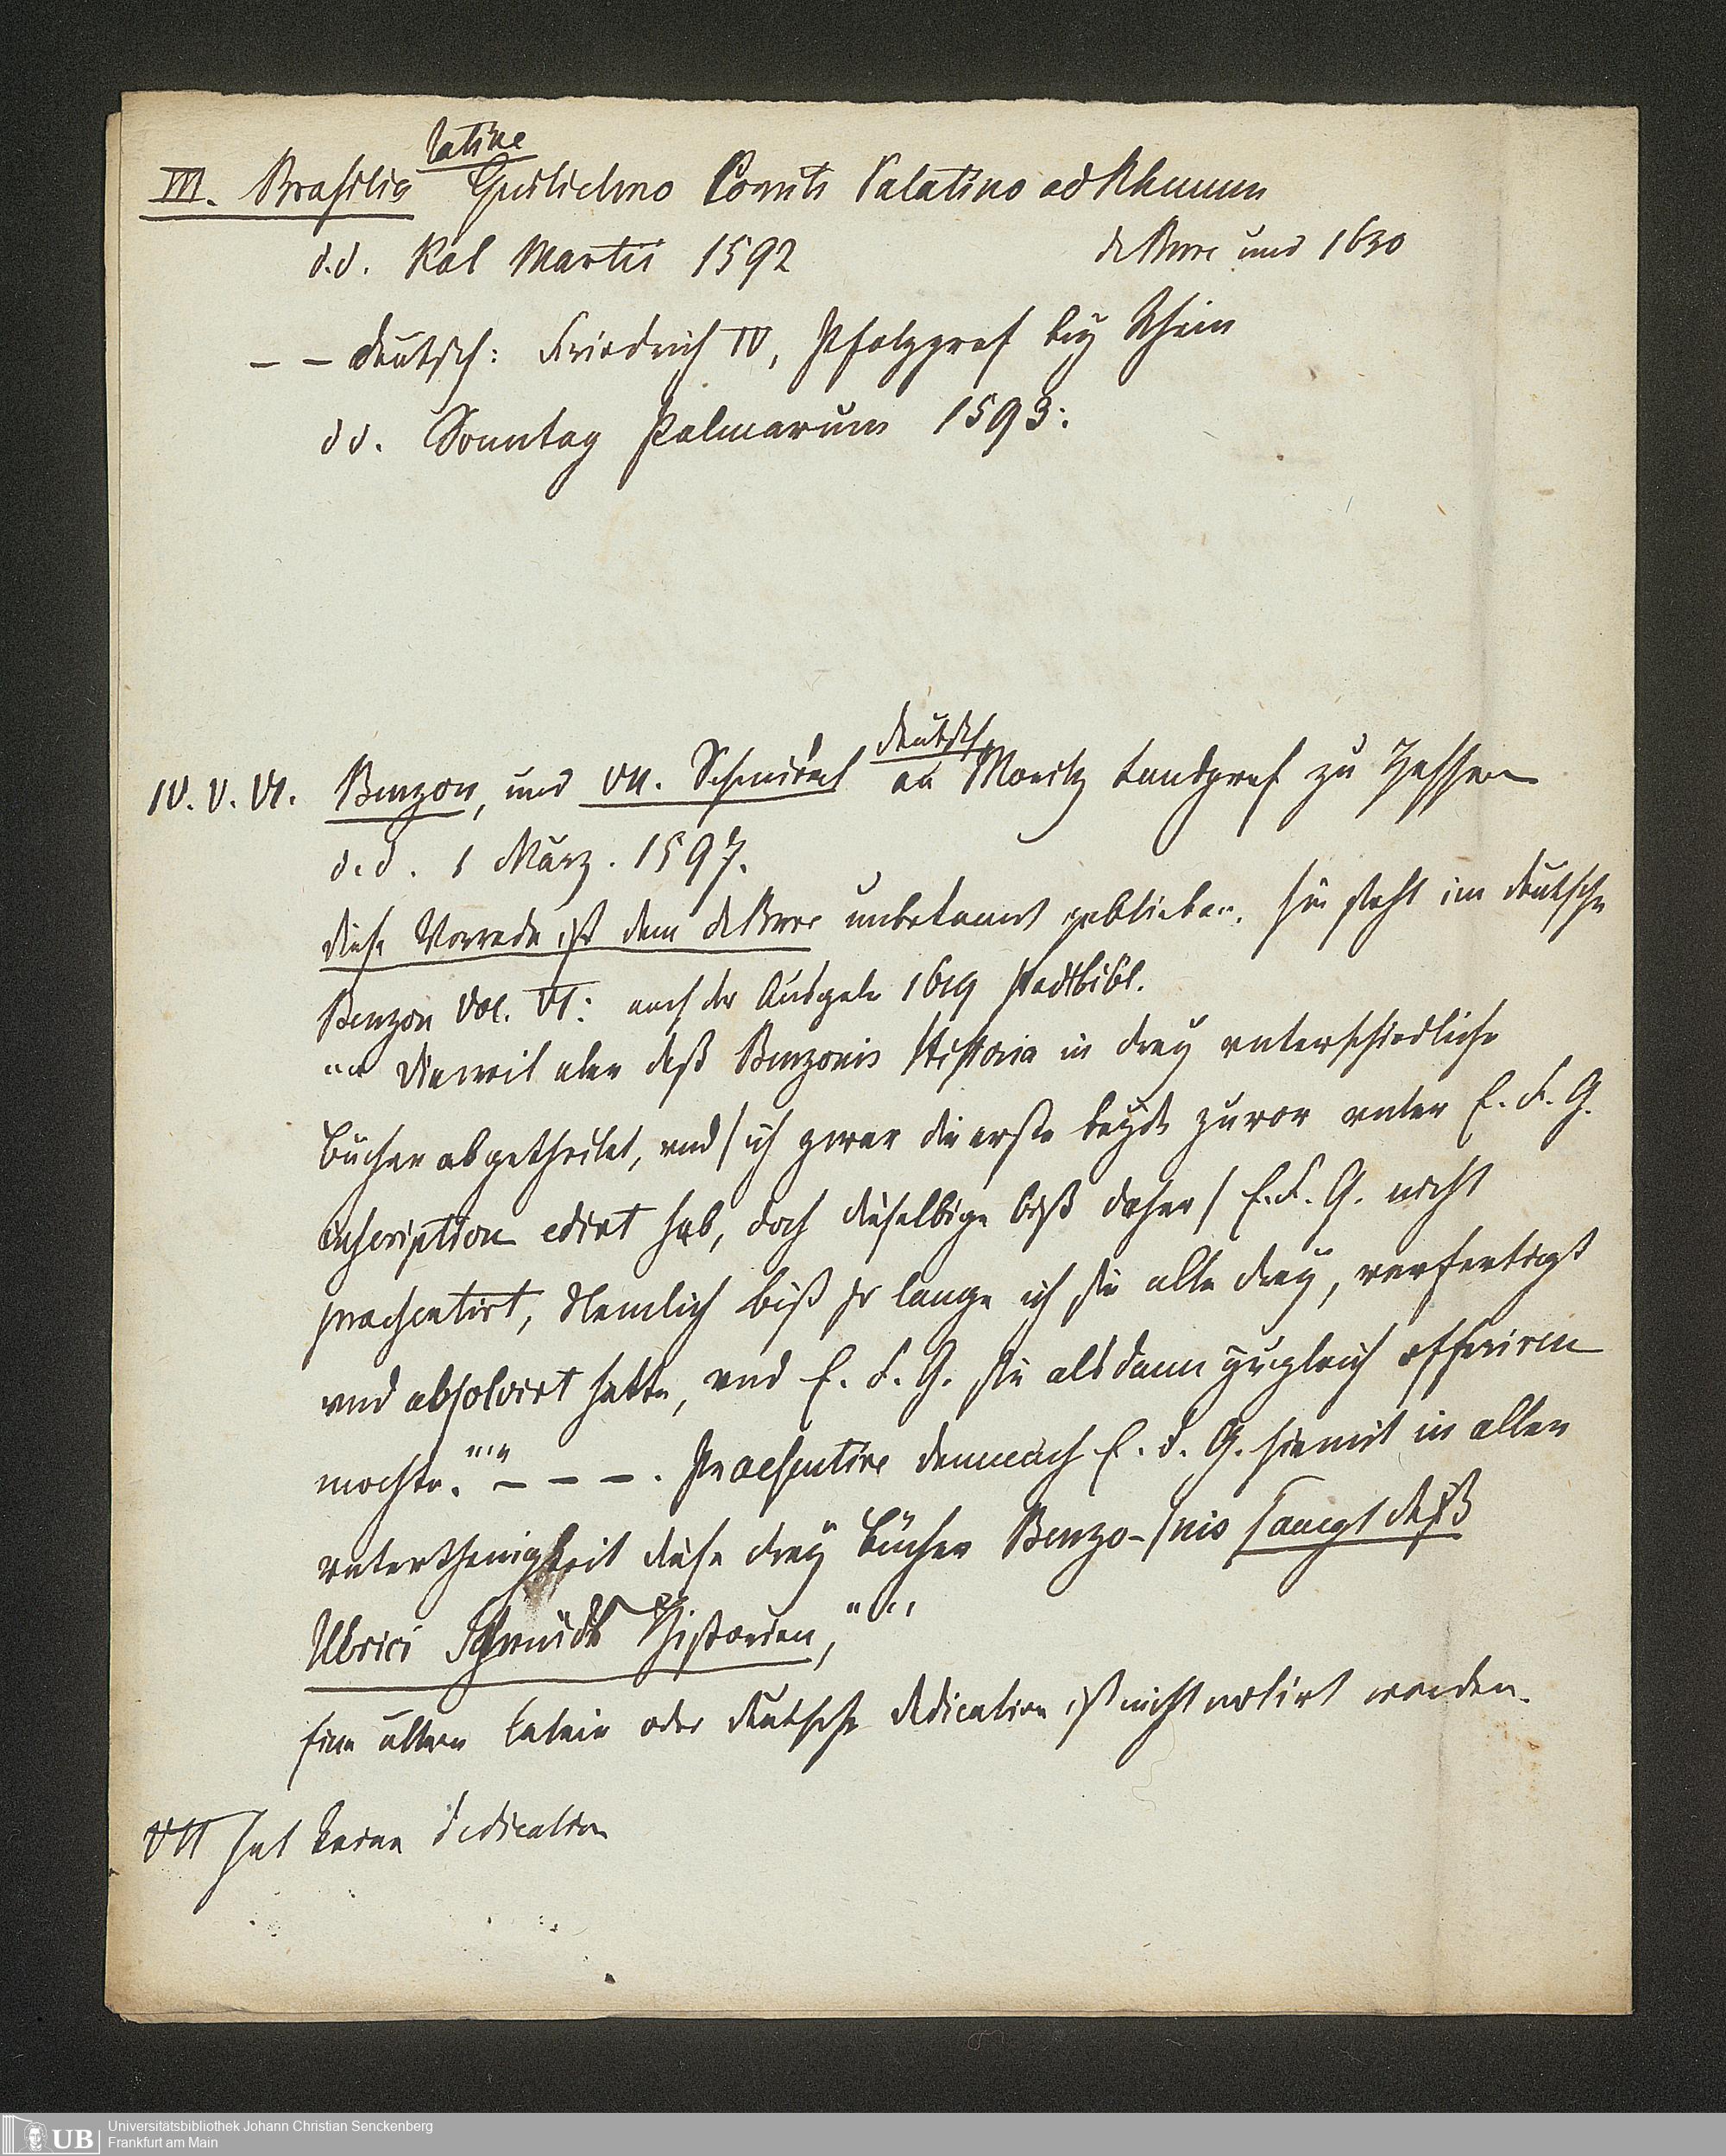 latine
III. Brasilia Guilielmo Comiti Palatino ad Rhenum
d.d. Kal Martii 1592 de Bure und 1630
– – deutsch: Friedrich IV, Pfalzgraf bey Rhein
dd. Sonntag Palmarum 1593:
deutsch
IV. V. VI. Benzon, und VII. Schmidel an Moritz Landgraf zu Hessen
d.d. 1 März. 1597.
diese Vorrede ist dem de Bure unbekannt geblieben. sie steht im deutschen
Benzon Vol. VI: auch der Ausgabe 1619 Stadtbibl.
"" Dieweil aber deß Benzonis Historia in drey vnterschiedliche
Bücher abgetheilet, vnd / ich zwar die erste beyde zuvor vnter E. F. G.
inscription edirt hab, doch dieselbige biß daher / E. F. G. nicht
praesentirt, Nemlich biß so lange ich sie alle drey, verfertigt
vnd absolvirt hette, vnd E. F. G. sie alsdann zugleich offeriren
mochte."" – – – . Praesentire demnach E. F. G. hiemit in aller
vnterthenigkeit diese drey Bücher Benzo-/nis sampt deß
Ulrici Schmidts Historien,""
Eine ältere latein oder deutsche Dedication ist nicht notirt worden.
VII hat keine Dedication
Universitätsbibliothek Johann Christian Senckenberg
Frankfurt am Main
UB